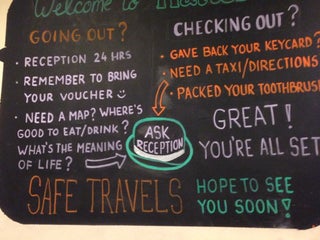 Welcome to
GOING OUT?
· RECEPTION 24 HRS
· REMEMBER TO BRING
YOUR VOUCHER
· NEED A MAP? WHERE'S
GOOD TO EAT/DRINK?
WHAT'S THE MEANING
OF LIFE?
CHECKING OUT?
· GAVE BACK YOUR KEYCARD?
· NEED A TAXI/DIRECTIONS
· PACKED YOUR TOOTHBRUS
ASK
RECEPTION
GREAT!
YOU'RE ALL SET
SAFE TRAVELS
HOPE TO SEE
YOU SOON!